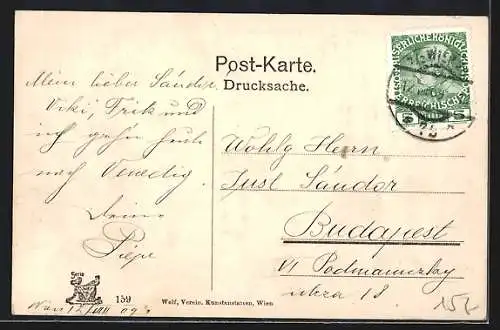 Post-Karte.
Drucksache.
KAISERLICHE KÖNIGLICHE
ÖSTERREICHISCHE
5
WIEN
Mein lieber Sándor!
Viki, Frik und
ich gehn heute
nach Venedig.
Deine
Pipe
Wohlg Herrn
Just Sándor
Budapest
VI Podmaniczky
utcza 18
Serie
159
Wolf, Verein. Kunstanstalten, Wien
Wien 12/VIII 09.
15.-